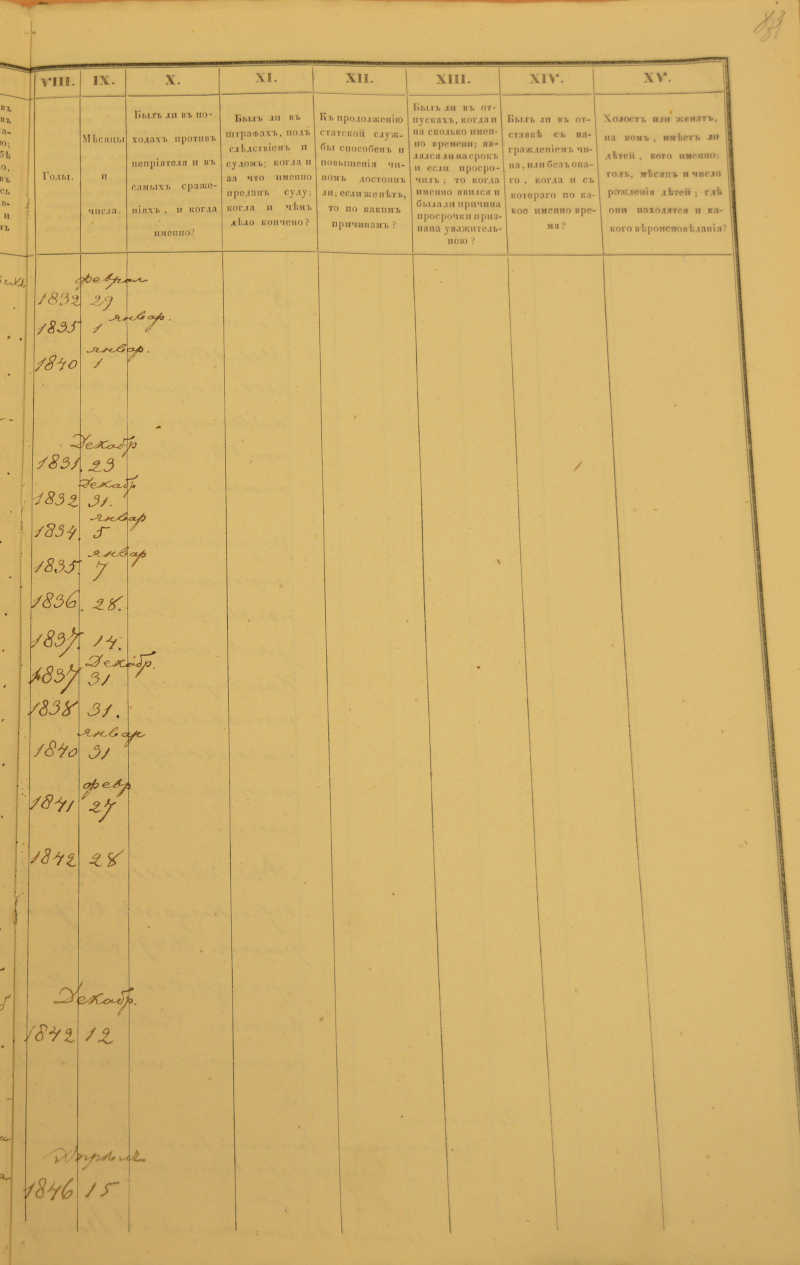 VIII. IX. X. XI. XII. XIII. XIV. XV.
Годы.
Мѣсяцы
и
числа.
Былъ ли въ по-
ходахъ противъ
непріятеля и въ
самыхъ сраже-
ніяхъ, и когда
именно?
Былъ ли въ
штрафахъ, подъ
слѣдствіемъ и
судомъ; когда и
за что именно
преданъ суду;
когда и чѣмъ
дѣло кончено?
Къ продолженію
статской служ-
бы способенъ и
повышенія чи-
номъ достоинъ
ли; если же нѣтъ,
то по какимъ
причинамъ?
Былъ ли въ от-
пускахъ, когда и
на сколько имен-
но времени; яв-
лялся ли на срокъ
и если просро-
чилъ; то когда
именно явился и
была ли причина
просрочки приз-
нана уважитель-
ною?
Былъ ли въ от-
ставкѣ съ на-
гражденіемъ чи-
на, или безъ она-
го, когда и съ
котораго по ка-
кое именно вре-
мя?
Холостъ или женатъ,
на комъ, имѣетъ ли
дѣтей, кого именно;
годъ, мѣсяцъ и число
рожденія дѣтей; гдѣ
они находятся и ка-
кого вѣроисповѣданія?
1832 29
Январ.
1835 1
Январ.
1840 1
Декабр
1831 23
Декаб.
1832 31.
Январ
1834 5
Январ
1835 7
1836 28.
1837 14.
Декабр.
1837 31
1838 31.
Январ
1840 31
февр
1841 27
1842 28
Декабр.
1842 12
1846 15